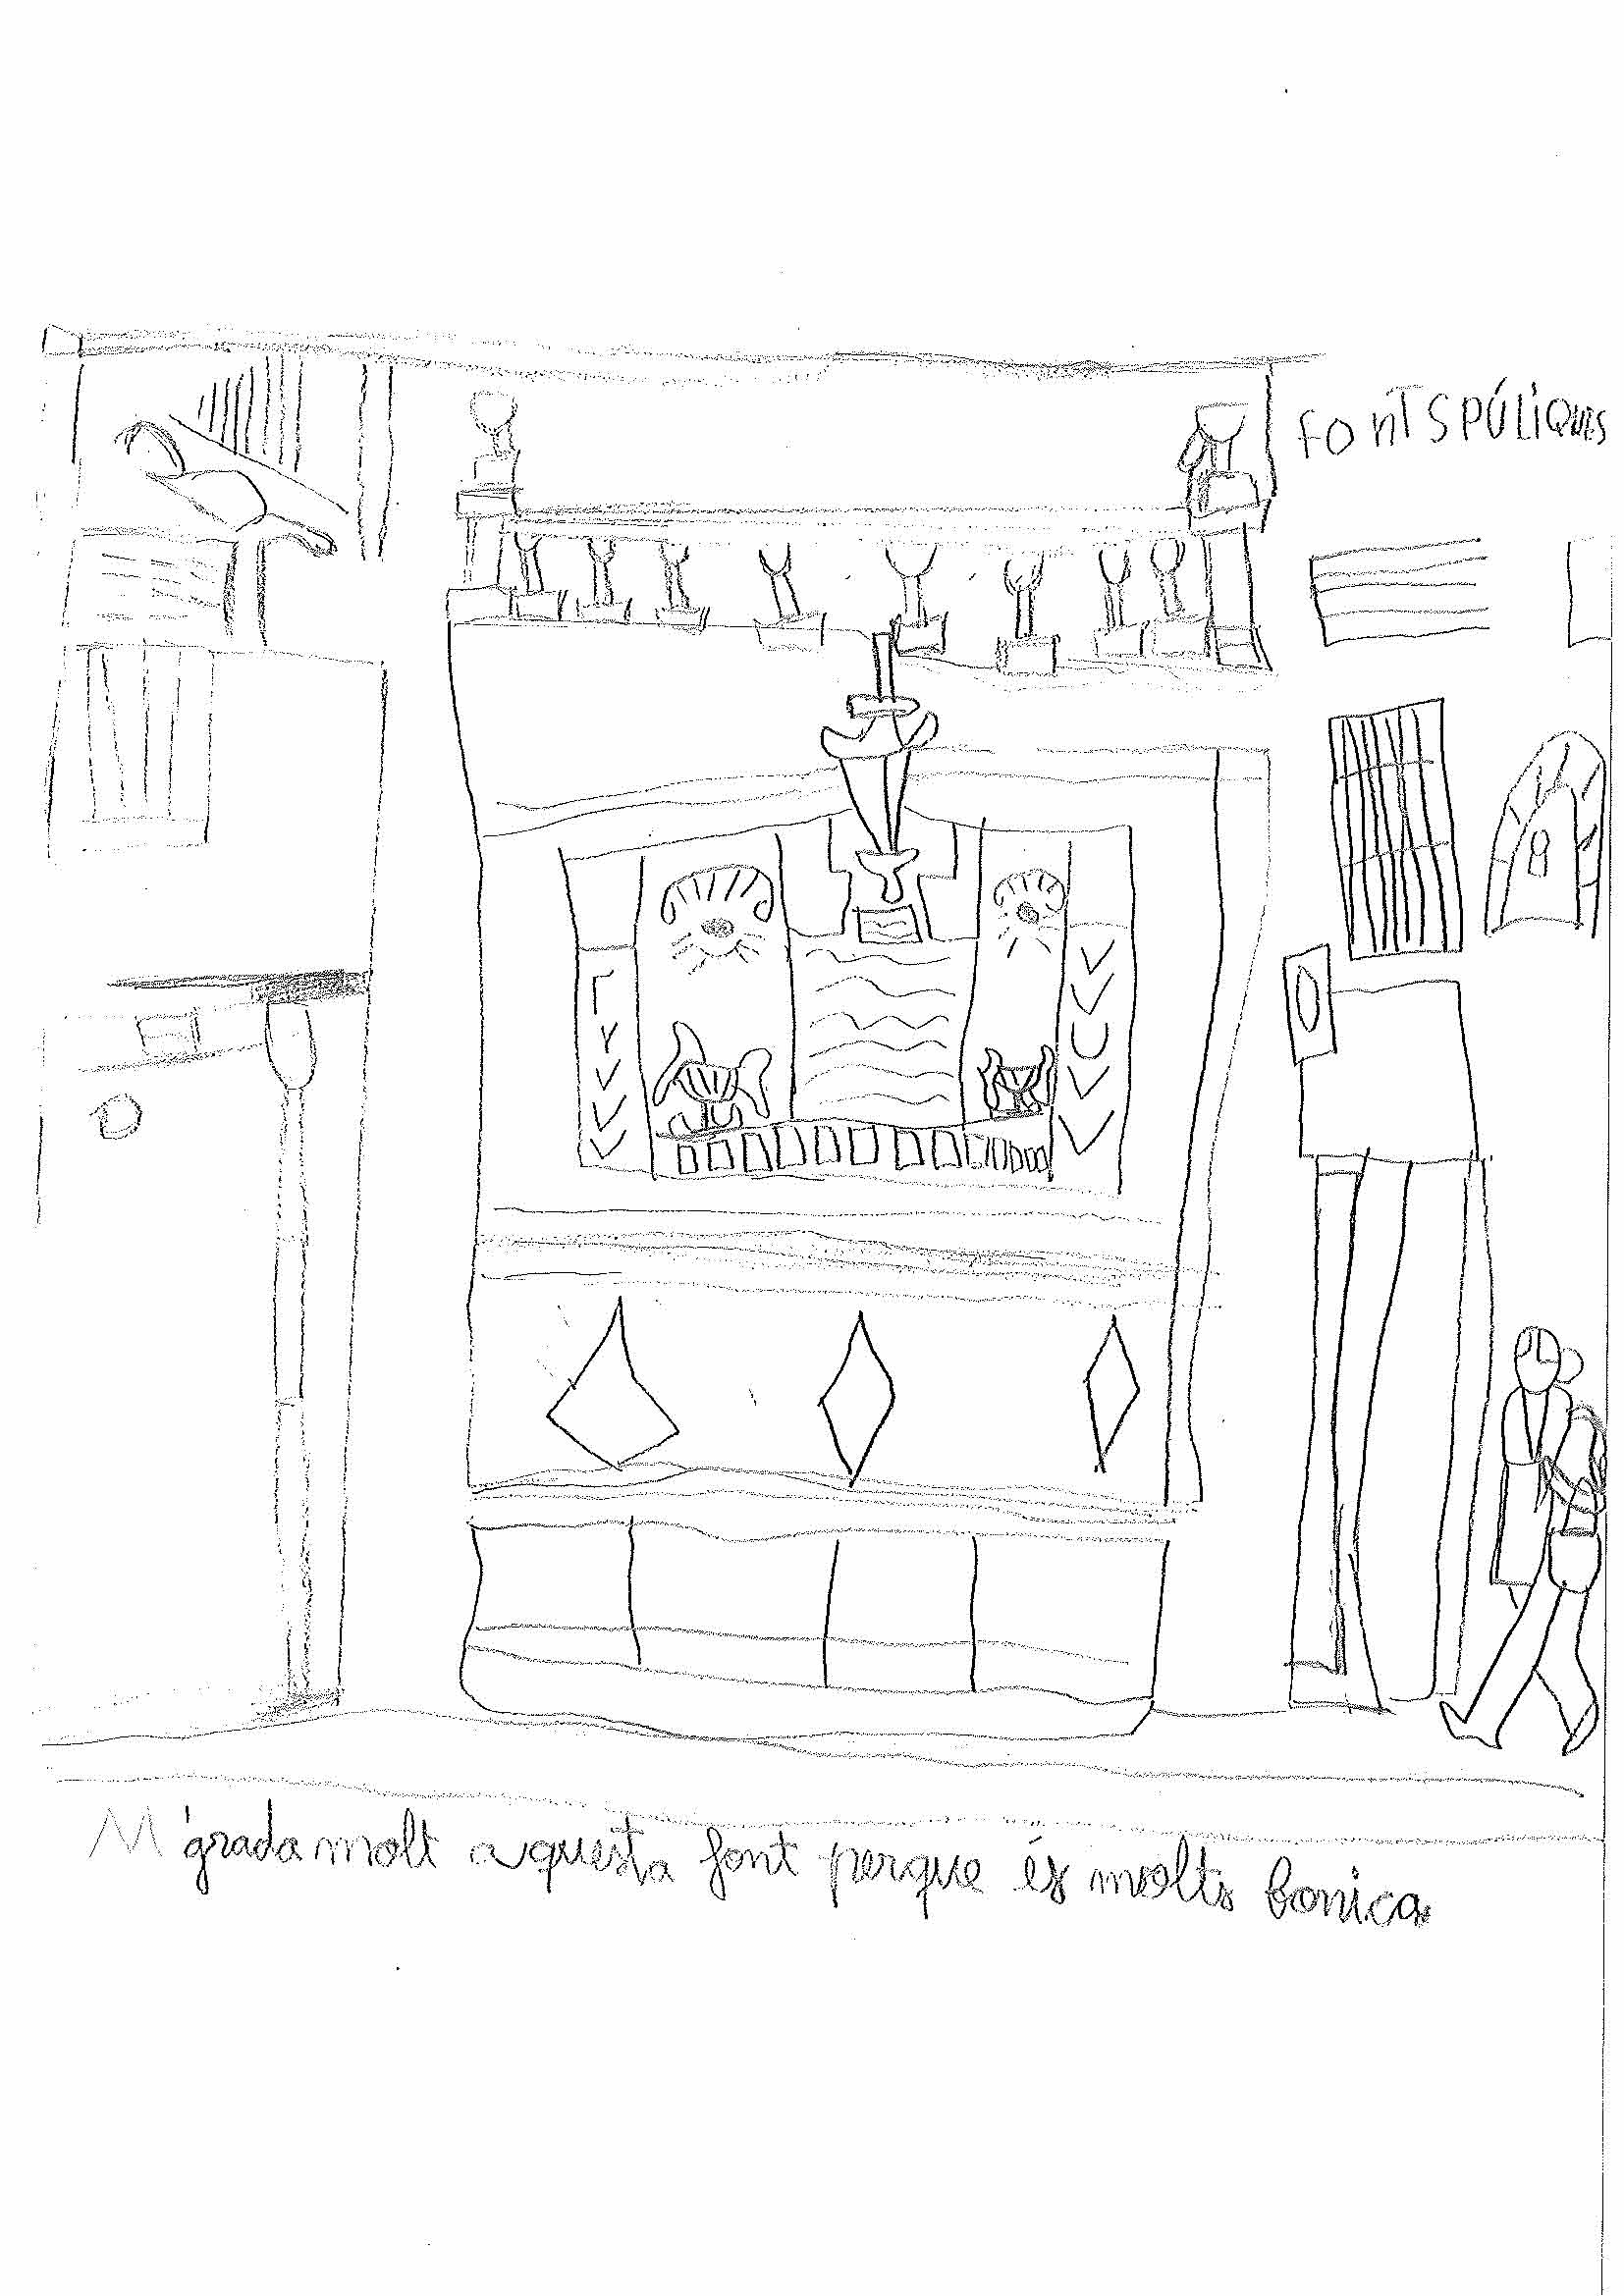 fonTS PÚLiQUES
8
M'grada molt aquesta font perque és molts bonica